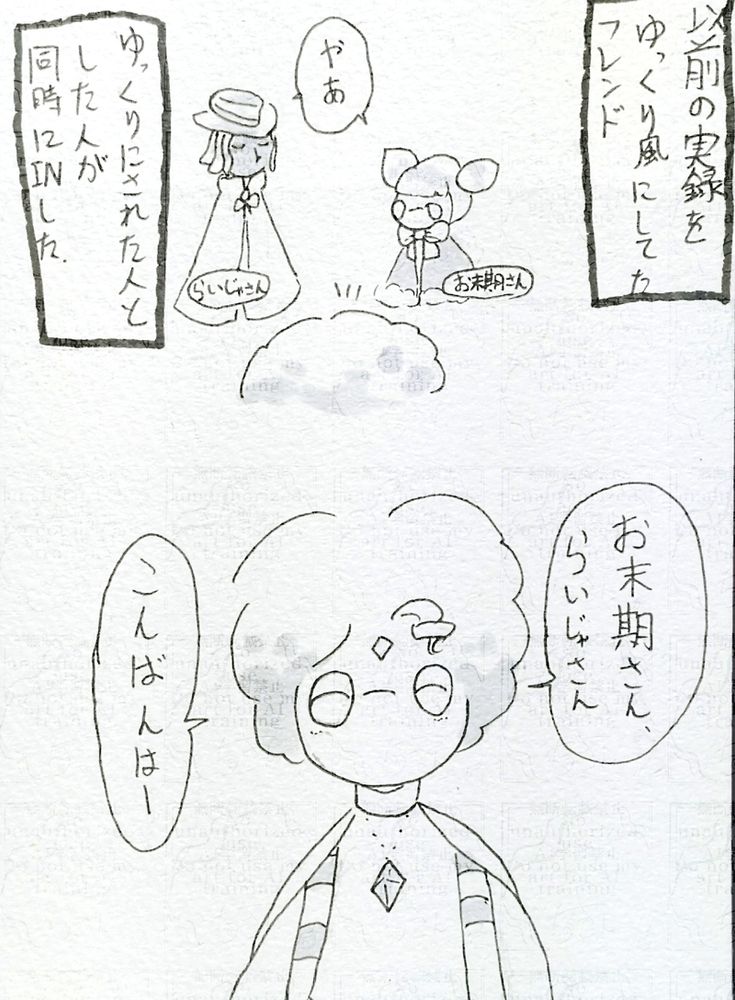 以前の実録を
ゆっくり風にしてた
フレンド
やあ
お末期さん
らいじゃさん
ゆっくりにされた人と
した人が
同時にINした.
お末期さん、
らいじゃさん
こんばんはー